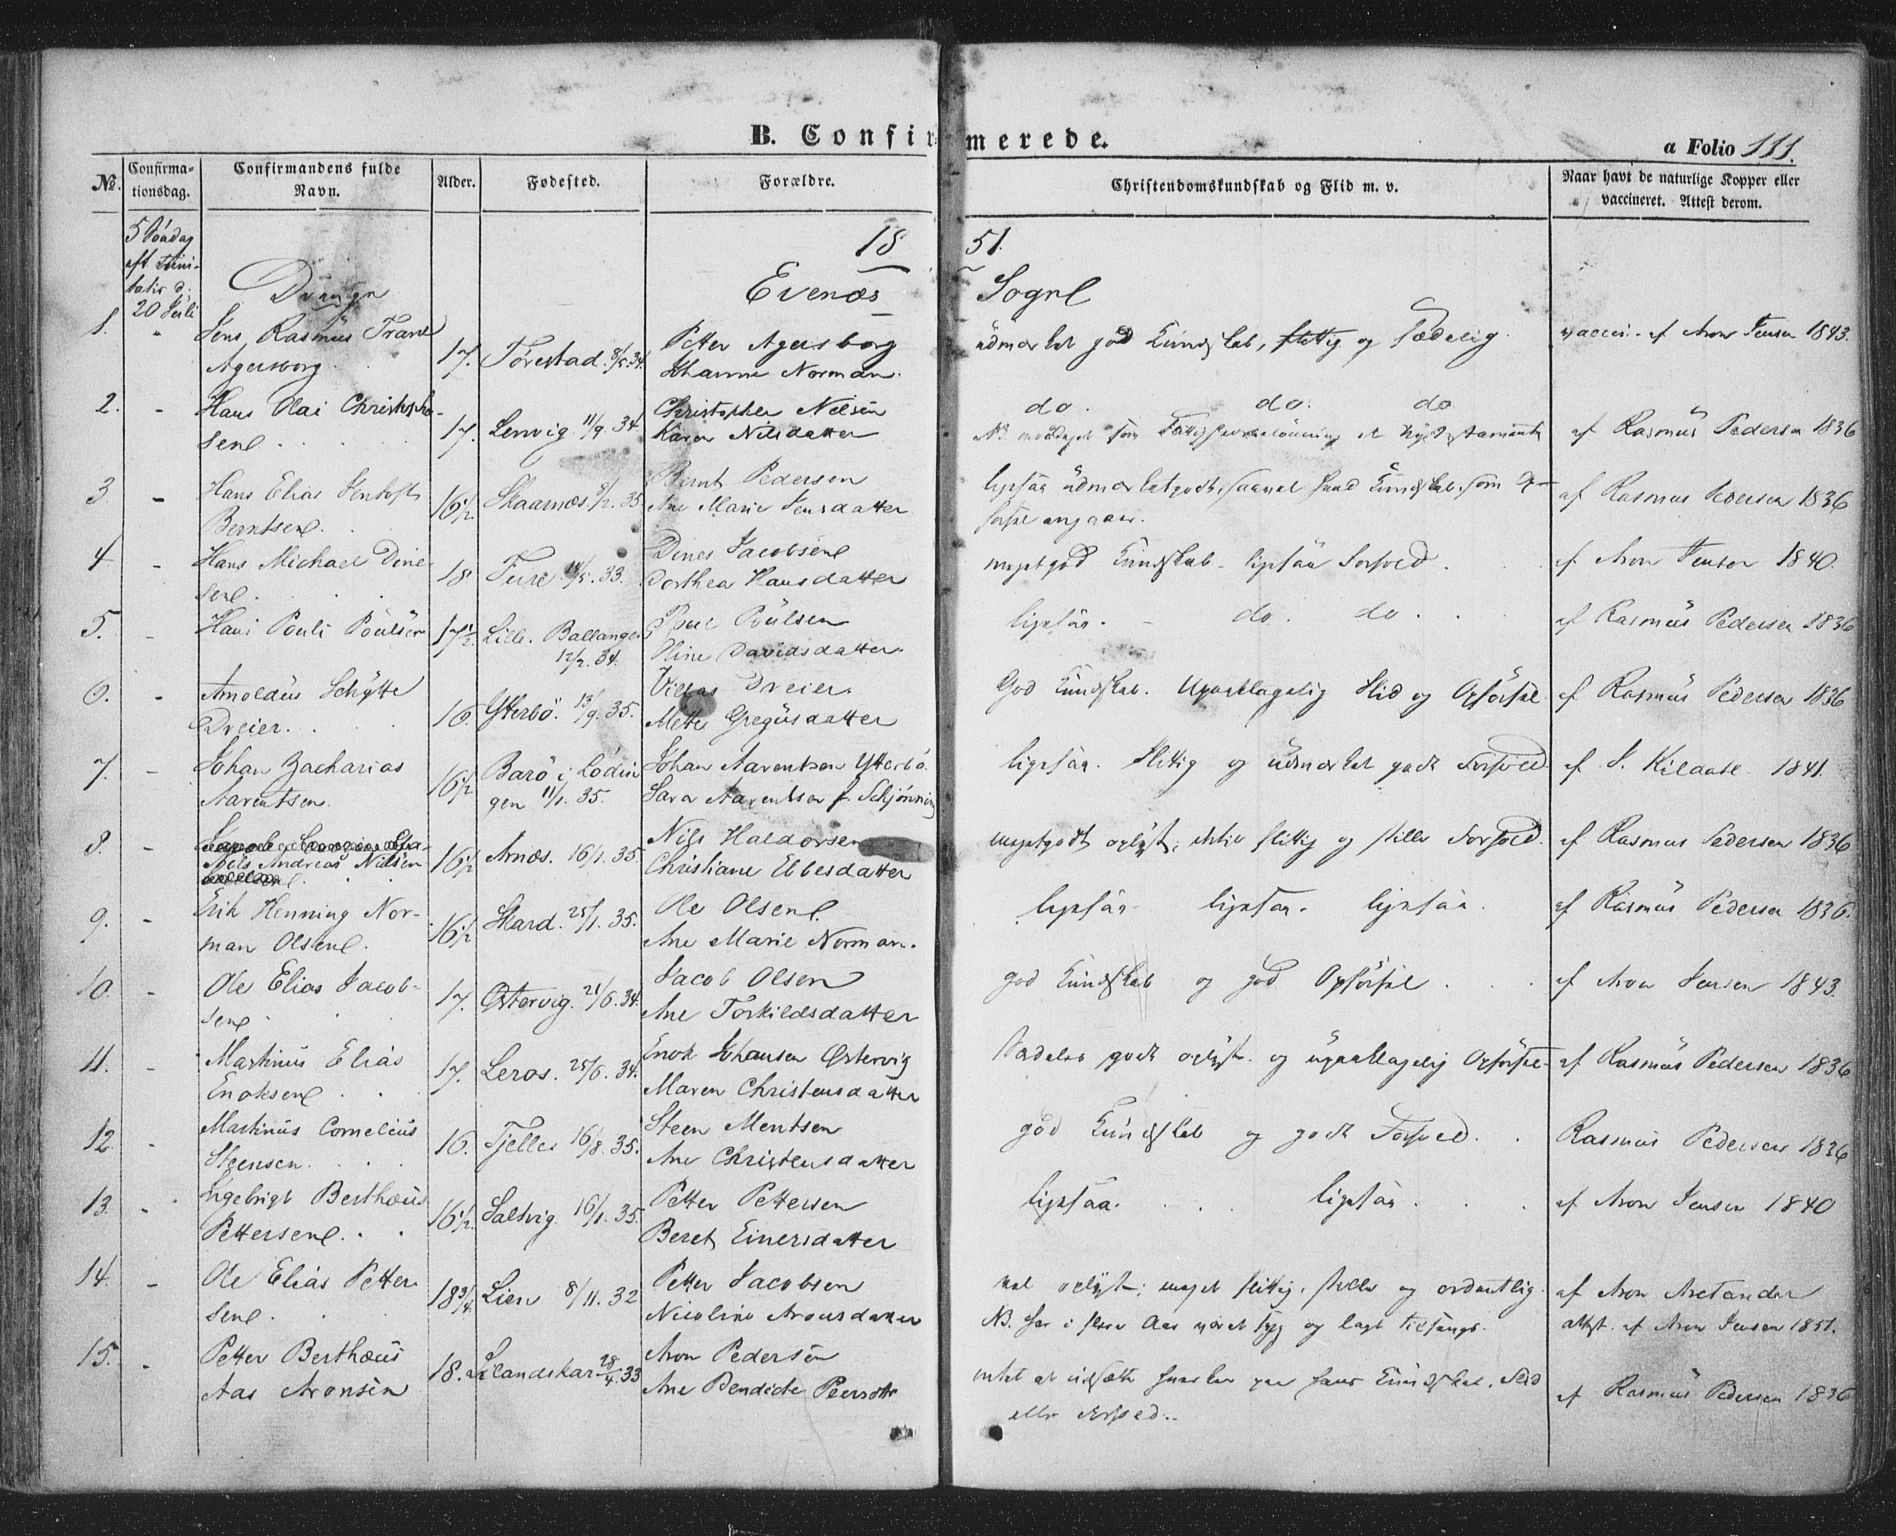 B. Confirmerede.
a Folio 111.
No. Confirmationsdag. Confirmandens fulde Navn. Alder. Fødested. Forældre. Christendomskundskab og Flid m. v. Naar havt de naturlige Kopper eller vaccineret. Attest derom.
5 Söndag
eft Trini-
tatis d.
20 Juli
1851.
Drenge
Evenæs Sogne
1. " Jens Rasmus Frane 17. Tørestad. 8/5.34. Petter Agersborg udmærket god Kundskab, flittig og sædelig. vacci. af Aron Jensen 1843.
Agersborg. Johanne Norman.
2. - Hans Olai Christophe- 17. Lenvig 11/9.34. Christopher Nilsen do. do. do
sen. Karen Nilsdatter NB. modtaget som et Nyt Testamente af Rasmus Pedersen 1836
3. - Hans Elias 16½. Skaarnæs /2.35. Bernt Pedersen ligesaa udmærket godt, saavel hvad Kundskab som Op-
Berntsen. Ane Marie Jensdatter førsel angaaer. af Rasmus Pedersen 1836
4. - Hans Michael Dine- 18 Fure 14/5.33. Dines Jacobsen meget god Kundskab - ligesaa Forhold. af Aron Jensen 1840.
sen. Dorthea Hansdatter
5. - Hans Pouli Poulsen 17½. Lille. Ballangen 12/2.34. Poul Poulsen ligesaa. - do. do. af Rasmus Pedersen 1836
Oline Davidsdatter.
6. - Arnoldus Schytte 16. Ytterbö. 13/9.35. Villas Dreier. God Kundskab. Upaaklagelig Flid og Opförsel. af Rasmus Pedersen 1836
Dreier. Mette Gregusdatter
7. - Johan Zacharias 16½ Barö i Lödin- Johan Aarentsen Ytterbö. ligesaa. flittig og udmærket godt Forhold af J. Kildahl 1841.
Aarentsen. gen 11/1.35. Sara Aarentsen f. Schjønning
8. - Nils Andreas Nilsen 16½ Arnæs. 16/1.35. Nils Haldorsen meget godt oplyst, flittig og stille Forhold. af Rasmus Pedersen 1836
Christiane Ebbesdatter
9. - Erik Henning Nor- 16½ Skard. 25/1.35. Ole Olsen. ligesaa. ligesaa. ligesaa. af Rasmus Pedersen 1836.
man Olsen. Ane Marie Norman.
10. - Ole Elias Jacob- 17. Østervig. 21/6.34. Jacob Olsen god Kundskab og god Opförsel af Aron Jensen 1843.
sen. Ane Torkildsdatter
11. - Martinus Elias 17. Leros. 25/6.34. Enok Johansen Østervig Særdeles godt oplyst. og upaaklagelig Opförsel. af Rasmus Pedersen 1836
Enoksen. Maren Christensdatter
12. - Martinus Cornelius 16. Tjelle. 16/8.35. Steen Mentsen god Kundskab og godt Forhold. Rasmus Pedersen 1836
Steensen. Ane Christensdatter
13. - Engebrigt Berthæus 16½. Saltvig. 16/1.35. Petter Pettersen ligesaa. ligesaa. af Aron Jensen 1840
Pettersen. Beret Einersdatter
14. - Ole Elias Petter- 18¾. Lien 8/11.32 Petter Jacobsen vel oplyst; meget flittig, stille og ordentlig. af Aron
sen. Nicoline Aronsdatter NB. har i flere Aar været syg og lagt tilsengs. attest. af Aron Jensen 1851.
15. - Petter Berthæus 18. Lilandskar 28/4.33 Aron Pedersen intet at udsætte hverken paa hans Kundskab, Flid
Aas Aronsen Ane Bendicte Peersdtr eller Forhold. af Rasmus Pedersen 1836